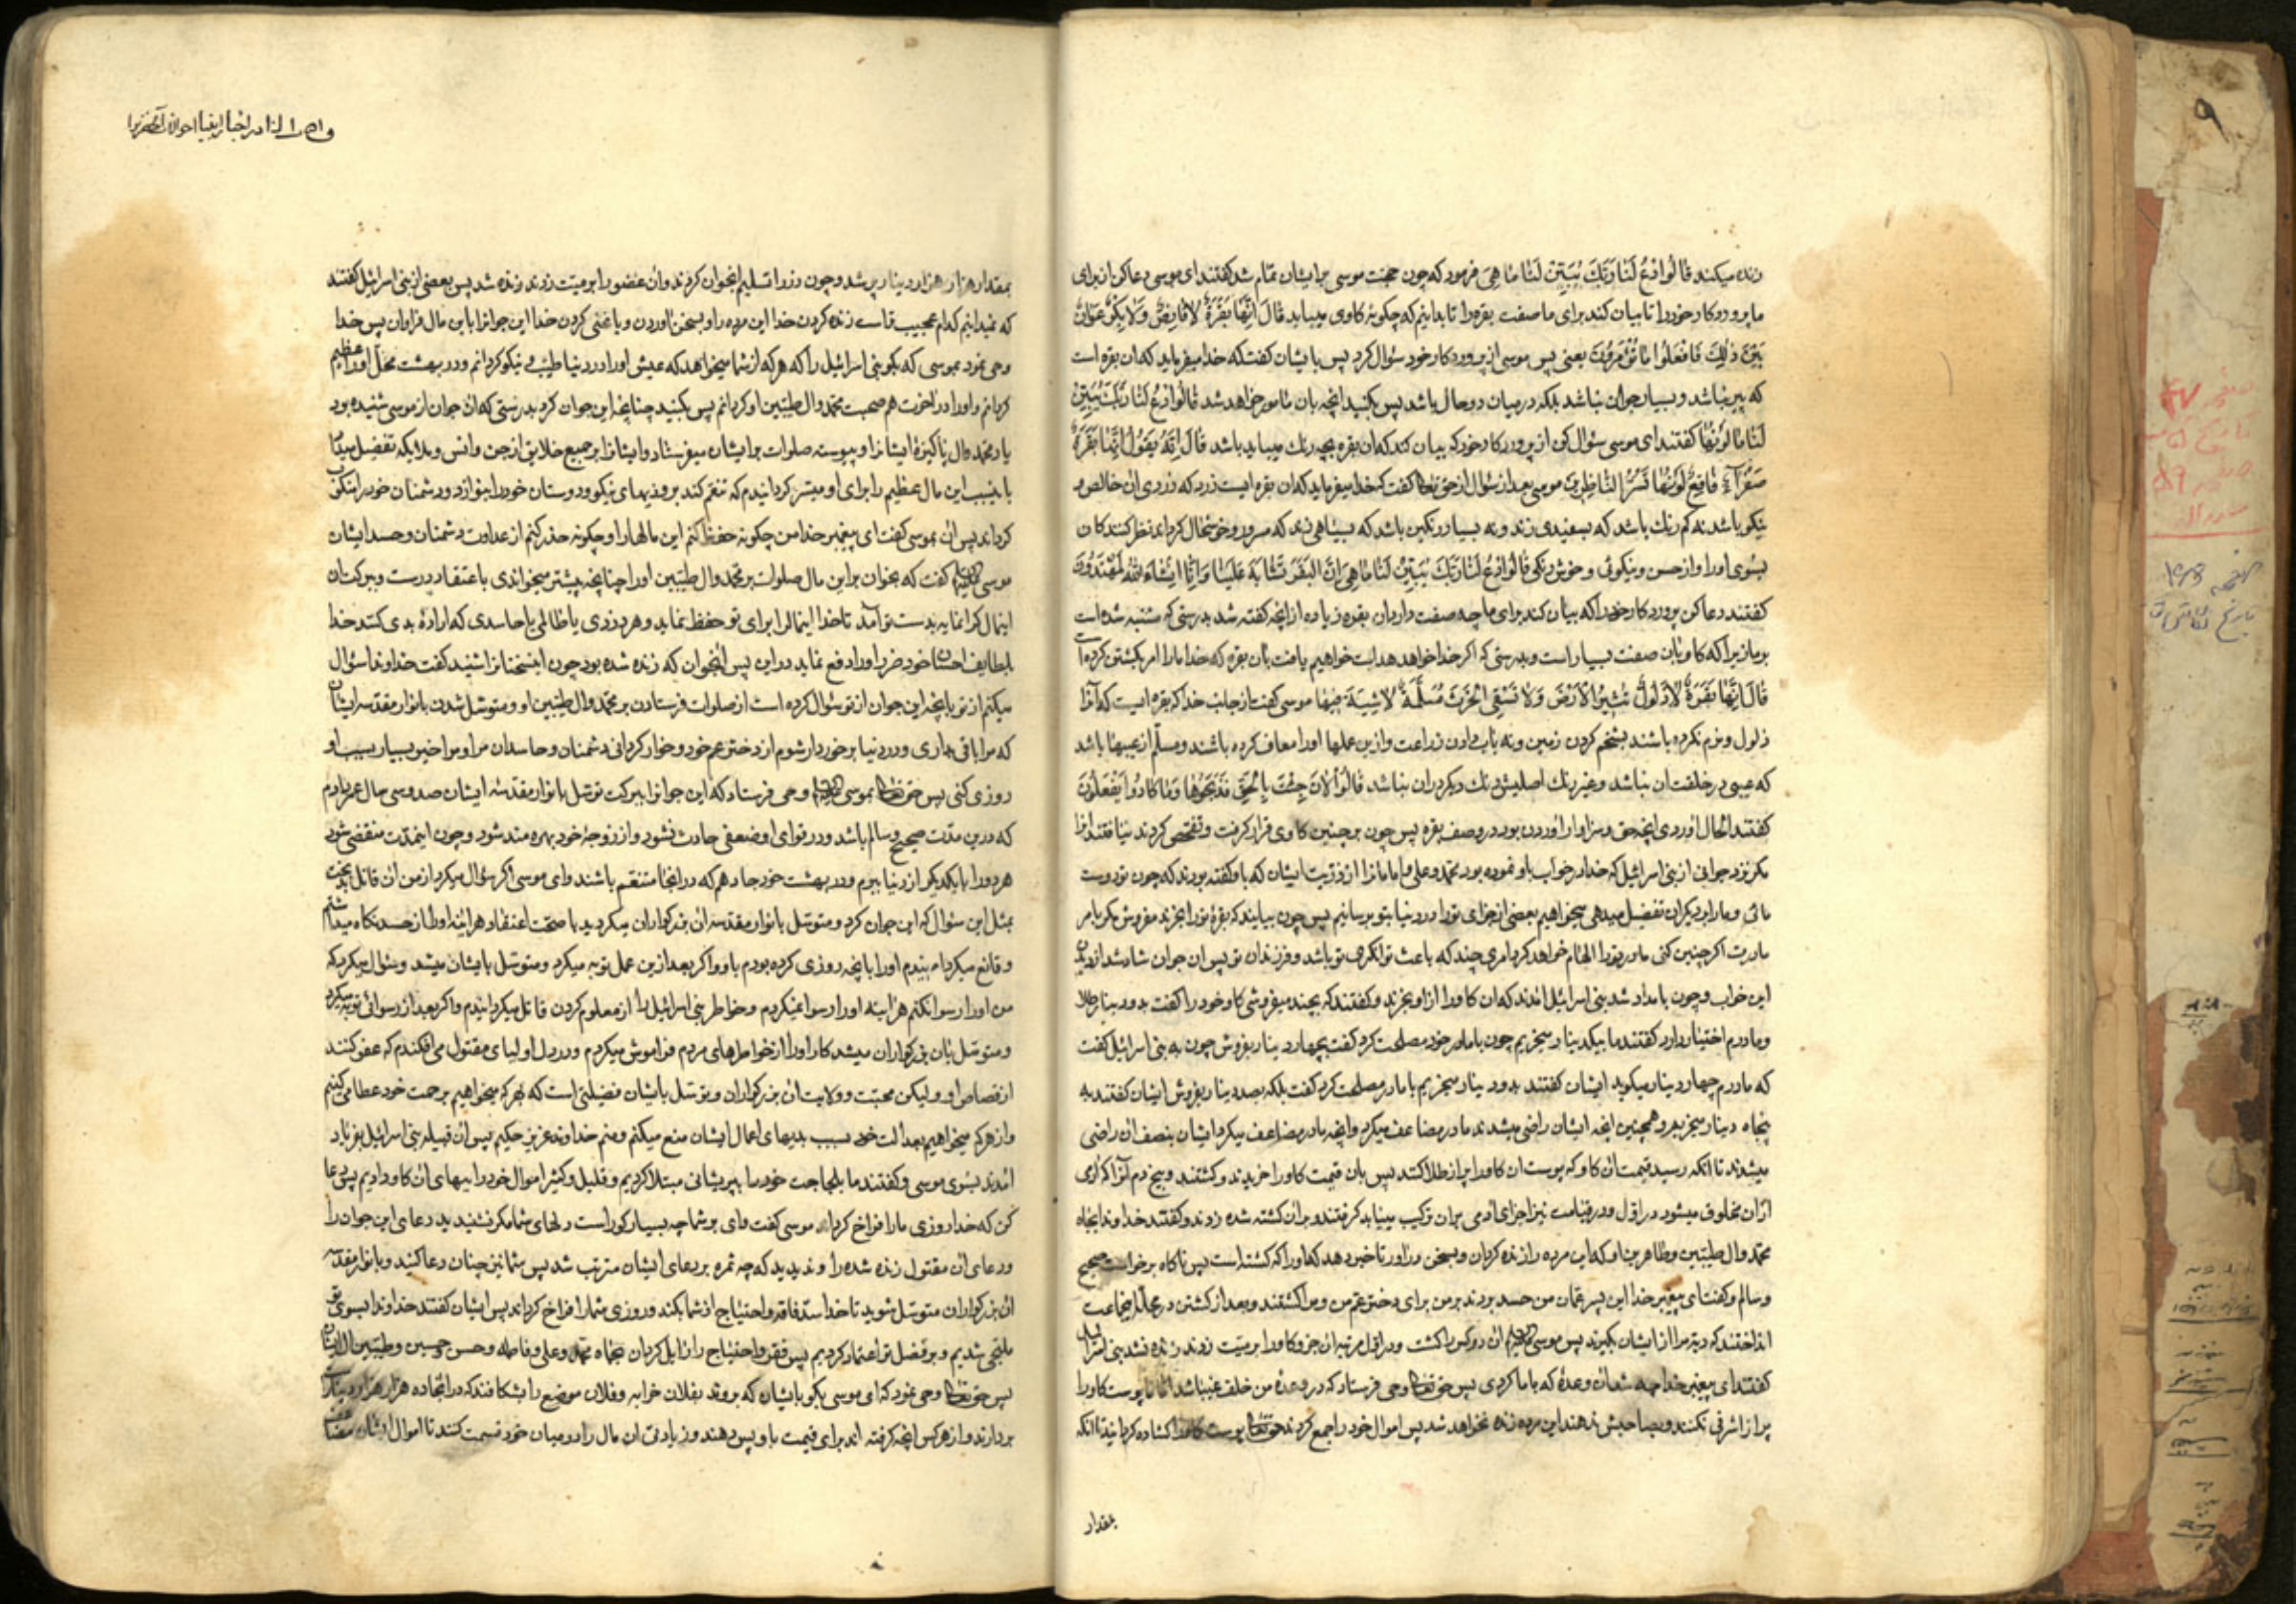 زنده میکند قالُوا ادْعُ لَنا رَبَّكَ یُبَیِّنْ لَنا ما هِیَ فرمود که چون حجت موسی بر ایشان تمام شد گفتند ای موسی دعا کن از برای
ما پروردکار خود را تا بیان کند برای ما صفت بقره را تا بدانیم که چکونه کاوی میباید قالَ اِنَّها بَقَرَةٌ لا فارِضٌ وَلا بِکْرٌ عَوانٌ
بَیْنَ ذلِكَ فَافْعَلُوا ما تُؤْمَرُونَ یعنی پس موسی از پروردکار خود سؤال کرد پس با یشان گفت که خدا میفرماید که ان بقره است
که پیر نباشد و بسیار جوان نباشد بلکه در میان دو حال باشد پس بکنید انچه بان مأمور خواهد شد قالُوا ادْعُ لَنا رَبَّكَ یُبَیِّنْ
لَنا ما لَوْنُها گفتند ای موسی سؤال کن از پروردکار خود که بیان کند که ان بقره بچه رنك میباید باشد قالَ اِنَّهُ یَقُولُ اِنَّها بَقَرَةٌ
صَفْرآءُ فاقِعٌ لَوْنُها تَسُرُّ النّاظِرِینَ موسی بعد از سؤال از حق تعالی گفت که خدا میفرماید که ان بقره ایست زرد که زردی ان خالص و
نیکو باشد نه کم رنك باشد که بسفیدی زند و نه بسیار رنکین باشد که بسیاهی زند که مسرور و خوشحال کرداند نظر کنندکان
بسوی او را از حسن و نیکوئی و خوش رنکی قالُوا ادْعُ لَنا رَبَّكَ یُبَیِّنْ لَنا ما هِیَ اِنَّ الْبَقَرَ تَشابَهَ عَلَیْنا وَاِنّا اِنْ شاءَ اللهُ لَمُهْتَدُونَ
گفتند دعا کن پروردکار خود را که بیان کند برای ما چه صفت دارد ان بقره زیاده از انچه گفته شد بدرستی که مشتبه شده است
بر ما زیرا که کاو باین صفت بسیار است و بدرستی که اکر خدا خواهد هدایت خواهیم یافت بان بقره که خدا ما را امر بکشتن کرده است
قالَ اِنَّها بَقَرَةٌ لا ذَلُولٌ تُثِیرُ الْاَرْضَ وَلا تَسْقِی الْحَرْثَ مُسَلَّمَةٌ لا شِیَةَ فِیها موسی گفت از جانب خدا که بقره ایست که آنرا
ذلول و نرم نکرده باشند بشخم کردن زمین و نه باب دادن زراعت و ازین عملها او را معاف کرده باشند و مسلّم از عیبها باشد
که عیبی در خلقت ان نباشد و غیر رنك اصلیش رنك دیکر در ان نباشد قالُوا الْآنَ جِئْتَ بِالْحَقِّ فَذَبَحُوها وَما کادُوا یَفْعَلُونَ
گفتند الحال اوردی انچه حق و سزاوار اوردن بود در وصف بقره پس چون بر چنین کاوی قرار کرفت و تفحص کردند نیافتند انرا
مکر نزد جوانی از بنی اسرائیل که خدا در خواب باو نموده بود محمد و علی و امامان را از ذریت ایشان که باو گفته بودند که چون تو دوست
مائی و ما را بر دیکران تفضیل میدهی میخواهیم بعضی از جزای تو را در دنیا بتو برسانیم پس چون بیایند که بقره تو را بخرند مفروش مکر بامر
مادرت اکر چنین کنی مادر تو را الهام خواهد کرد امری چند که باعث توانکری تو باشد و فرزندان تو پس ان جوان شاد شد از دیدن
این خواب و چون بامداد شد بنی اسرائیل امدند که ان کاو را از او بخرند و گفتند که بچند میفروشی کاو خود را گفت بدو دینار طلا
و مادرم اختیار دارد گفتند ما بیکدینار میخریم چون با مادر خود مصلحت کرد گفت بچهار دینار بفروش چون به بنی اسرائیل گفت
که مادرم چهار دینار میکوید ایشان گفتند بدو دینار میخریم با مادر مصلحت کرد گفت بلکه بصد دینار بفروش ایشان گفتند به
پنجاه دینار میخریم و همچنین انچه ایشان راضی میشدند مادر مضاعف میکرد و انچه مادر مضاعف میکرد ایشان بنصف ان راضی
میشدند تا انکه رسید قیمت ان کاو که پوست ان کاو را پر از طلا کنند پس بان قیمت کاو را خریدند و کشتند و بیخ دم آنرا که ادمی
از ان مخلوق میشود در اول و در قیامت نیز اجزای ادمی بر ان ترکیب میباید کرفتند و بر ان کشته شده زدند و گفتند خداوندا بجاه
محمد و ال طیّبین و طاهرین او که این مرده را زنده کردان و بسخن دراور تا خبر دهد که او را که کشته است پس ناکاه برخواست صحیح
و سالم و گفت ای پیغمبر خدا این پسر عمان من حسد بردند بر من برای دختر عم من و مرا کشتند و بعد از کشتن در محلّه اینجماعت
انداختند که دیه مرا از ایشان بکیرند پس موسی ان دو کس را کشت و در اول مرتبه ان جزو کاو را بر میت زدند زنده نشد بنی اسرائیل
گفتند ای پیغمبر خدا چه شد ان وعدهٔ که با ما کردی پس حق تعالی وحی فرستاد که در وعدهٔ من خلف نمیباشد اما تا پوست کاو را
پر از اشرفی نکنند و بصاحبش ندهند این مرده زنده نخواهد شد پس اموال خود را جمع کردند حق تعالی پوست کاو را کشاده کردانید تا انکه
بمقدار
بمقدار هزار هزار دینار پر شد و چون زر را تسلیم انجوان کردند و ان عضو را بر میت زدند زنده شد پس بعضی از بنی اسرائیل گفتند
که نمیدانیم کدام عجیب تر است زنده کردن خدا این مرده را و بسخن اوردن و یا غنی کردن خدا این جوانرا باین مال فراوان پس خدا
وحی نمود بموسی که بکو بنی اسرائیل را که هر که از شما میخواهد که عیش او را در دنیا طیّب و نیکو کردانم و در بهشت محلّ او را عظیم
کردانم و او را در اخرت هم صحبت محمد و ال طیّبین او کردانم پس بکنید چنانچه این جوان کرد بدرستی که ان جوان از موسی شنیده بود
یاد محمد و ال پاکیزهٔ ایشانرا و پیوسته صلوات بر ایشان میفرستاد و ایشانرا بر جمیع خلایق از جن و انس و ملایکه تفضیل میداد
باینسبب این مال عظیم را برای او میسّر کردانیدم که تنعّم کند بروزیهای نیکو و دوستان خود را بنوازد و دشمنان خود را منکوب
کرداند پس ان بموسی گفت ای پیغمبر خدا من چکونه حفظ کنم این مالها را و چکونه حذر کنم از عداوت دشمنان و حسد ایشان
موسی گفت که بخوان بر این مال صلوات بر محمد و ال طیّبین او را چنانچه پیشتر میخواندی با عتقاد درست و ببرکت ان
اینمال کرانمایه بدست تو آمد تا خدا اینمال را برای تو حفظ نماید و هر دزدی یا ظالمی یا حاسدی که ارادهٔ بدی کند خدا
بلطایف احسان خود ضرر او را دفع نماید در این پس انجوان که زنده شده بود چون اینسخنانرا شنید گفت خداوندا سؤال
میکنم از تو بانچه این جوان از تو سؤال کرده است از صلوات فرستادن بر محمد و ال طیّبین او و متوسّل شدن بانوار مقدسهٔ ایشان
که مرا باقی بداری و در دنیا برخوردار شوم از دختر عم خود و خوار کردانی دشمنان و حاسدان مرا و مرا خیر بسیار بسبب او
روزی کنی پس حق تعالی بموسی وحی فرستاد که این جوانرا ببرکت توسّل بانوار مقدّسهٔ ایشان صد و سی سال عمر دادم
که درین مدّت صحیح و سالم باشد و در قوای او ضعفی حادث نشود و از زوجهٔ خود بهره مند شود و چون اینمدّت منقضی شود
هر دو را با یکدیکر از دنیا ببرم و در بهشت خود جا دهم که در انجا متنعّم باشند و ای موسی اکر سؤال میکرد از من ان قاتل بدبخت
بمثل این سؤال که این جوان کرد و متوسّل بانوار مقدسه ان بزرکواران میکردید با صحّت اعتقاد هر اینه او را از حسد نکاه میداشتم
و قانع میکردانیدم او را بانچه روزی کرده بودم باو و اکر بعد ازین عمل توبه میکرد و متوسّل بایشان میشد و سؤال میکرد که
من او را رسوا نکنم هر اینه او را رسوا نمیکردم و خاطر بنی اسرائیل را از معلوم کردن قاتل میکردانیدم و اکر بعد از رسوائی توبه میکرد
و متوسّل بان بزرکواران میشد کار او را از خاطرهای مردم فراموش میکردم و در دل اولیای مقتول می افکندم که عفو کنند
از قصاص او ولیکن محبّت و ولایت ان بزرکواران و توسّل بایشان فضیلتی است که بهر که میخواهیم برحمت خود عطا می کنیم
و از هر که میخواهیم بعدالت خود بسبب بدیهای اعمال ایشان منع میکنم و منم خداوند عزیز حکیم پس ان قبیله بنی اسرائیل بفریاد
امدند بسوی موسی و گفتند ما بلجاجت خود را بپریشانی مبتلا کردیم و قلیل و کثیر اموال خود را ببهای ان کاو دادیم پس دعا
کن که خدا روزی ما را فراخ کرداند موسی گفت وای بر شما چه بسیار کور است دلهای شما مکر نشنیدید دعای این جوان را
و دعای ان مقتول زنده شده را و ندیدید که چه ثمره بر دعای ایشان مترتب شد پس شما نیز چنان دعا کنید و بانوار مقدسه
ان بزرکواران متوسّل شوید تا خدا سدّ فاقه و احتیاج از شما بکند و روزی شما را فراخ کرداند پس ایشان گفتند خداوندا بسوی تو
ملتجی شدیم و بر فضل تو اعتماد کردیم پس فقر و احتیاج را زایل کردان بجاه محمد و علی و فاطمه و حسن و حسین و طیّبین ال ایشان
پس حق تعالی وحی نمود که ای موسی بکو بایشان که بروند بفلان خرابه و فلان موضع را بشکافند که در انجا ده هزار هزار دینار
بردارند و از هر کس انچه کرفته اند برای قیمت باو پس دهند و زیادتی ان مال را در میان خود قسمت کنند تا اموال ایشان مضاعف